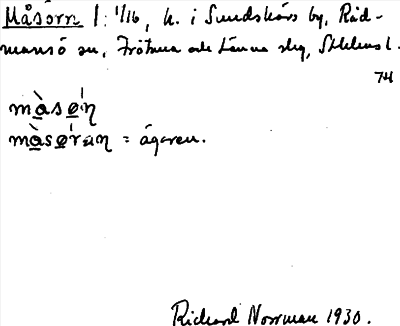 Måsörn 1: 1/16, h. i Sundskärs by, Räd-
mansö sn, Frötuna och Länna slg, Sthlms l.
74
måsøṇ
måsøran = ägaren.
Richard Norrman 1930.